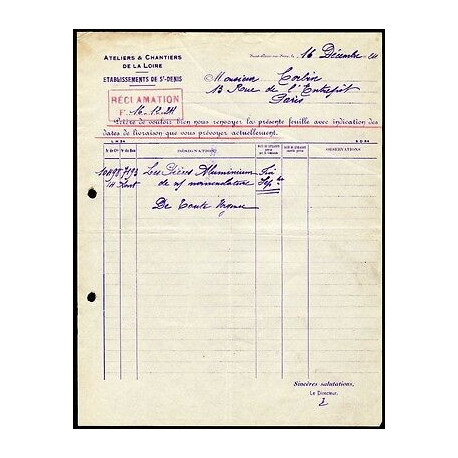 ATELIERS & CHANTIERS
DE LA LOIRE
ETABLISSEMENTS DE ST-DENIS
le, 16 Décembre
Monsieur Corbin
13 Rue de l'Entrepôt
Paris
RÉCLAMATION
F. 16. 12. 24
Prière de vouloir bien nous renvoyer la présente feuille avec indication des
dates de livraison que vous prévoyez actuellement.
DÉSIGNATION
OBSERVATIONS
7193 Les Pièces Aluminium Fin
14 Août de nomenclature Sepbre
De Toute Urgence
Sincères salutations,
Le Directeur,